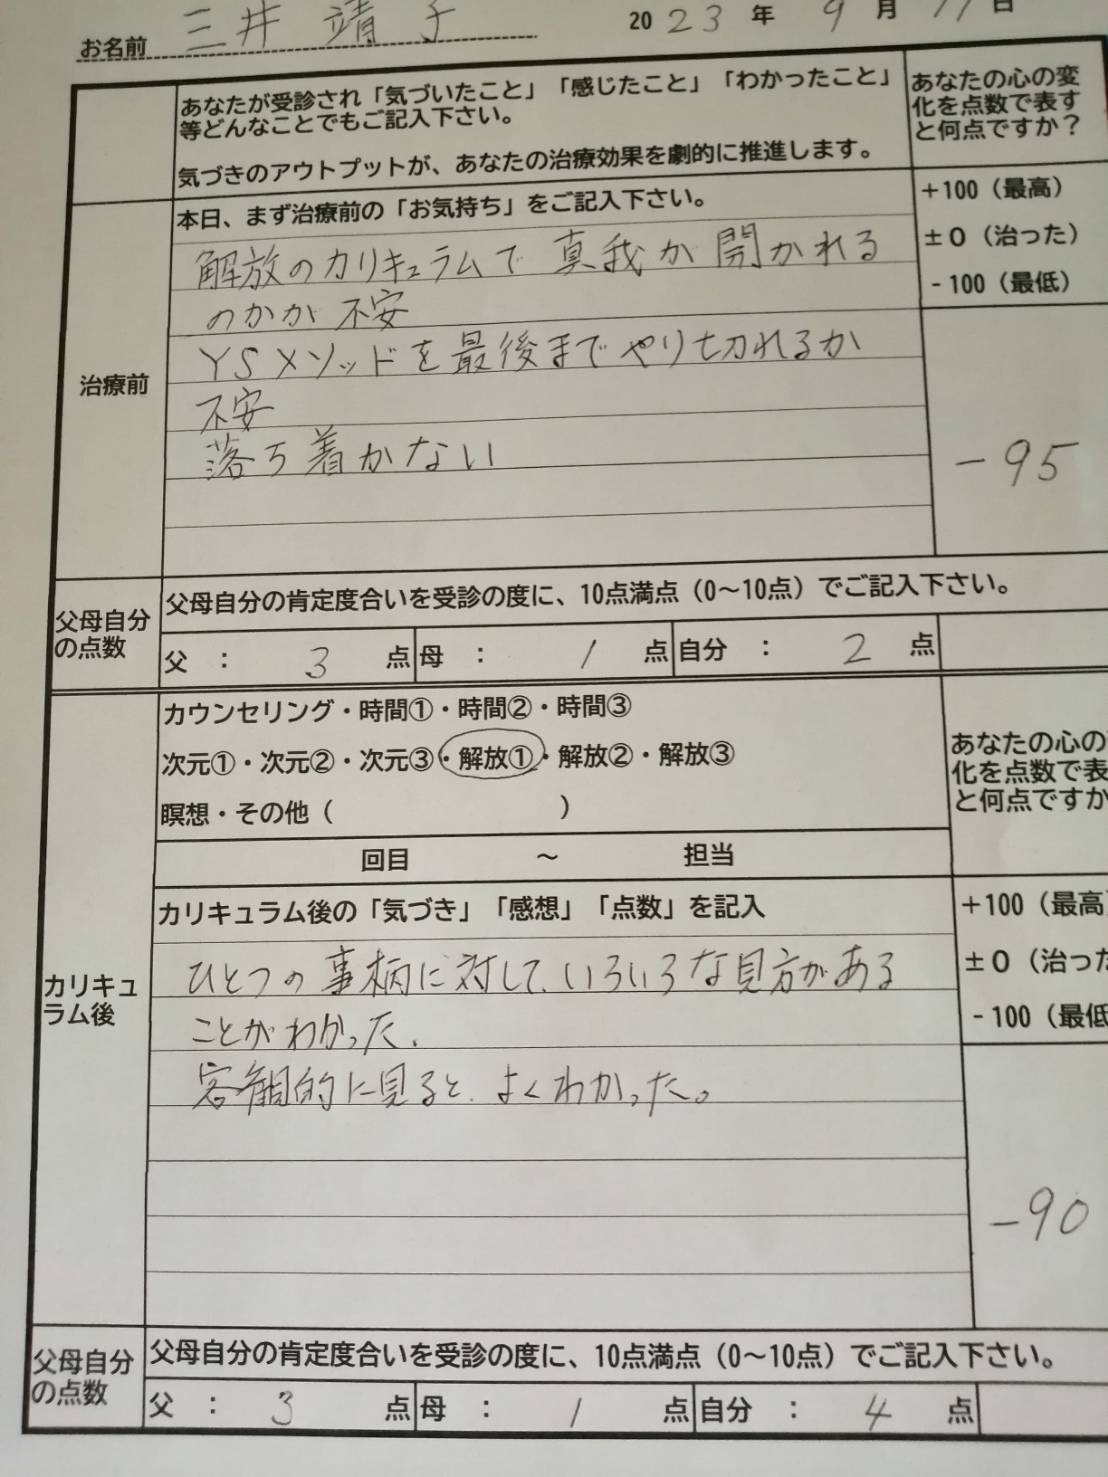 お名前 三井 靖子 2023年 9月 日
あなたが受診され「気づいたこと」「感じたこと」「わかったこと」
等どんなことでもご記入下さい。
気づきのアウトプットが、あなたの治療効果を劇的に推進します。
あなたの心の変
化を点数で表す
と何点ですか？
治療前
本日、まず治療前の「お気持ち」をご記入下さい。
＋100（最高）
±０（治った）
- 100（最低）
解放のカリキュラムで 真我が開かれる
のかが 不安
YSメソッドを最後までやり切れるか
不安
落ち着かない
－95
父母自分
の点数
父母自分の肯定度合いを受診の度に、10点満点（0～10点）でご記入下さい。
父 ： 3 点 母 ： 1 点 自分 ： 2 点
カリキュ
ラム後
カウンセリング・時間①・時間②・時間③
次元①・次元②・次元③・解放①・解放②・解放③
瞑想・その他（ ）
あなたの心の
化を点数で表
と何点ですか
回目 ～ 担当
カリキュラム後の「気づき」「感想」「点数」を記入
＋100（最高）
±０（治った
- 100（最低
ひとつの事柄に対して、いろいろな見方がある
ことがわかった。
客観的に見ると、よくわかった。
－90
父母自分
の点数
父母自分の肯定度合いを受診の度に、10点満点（0～10点）でご記入下さい。
父 ： 3 点 母 ： 1 点 自分 ： 4 点